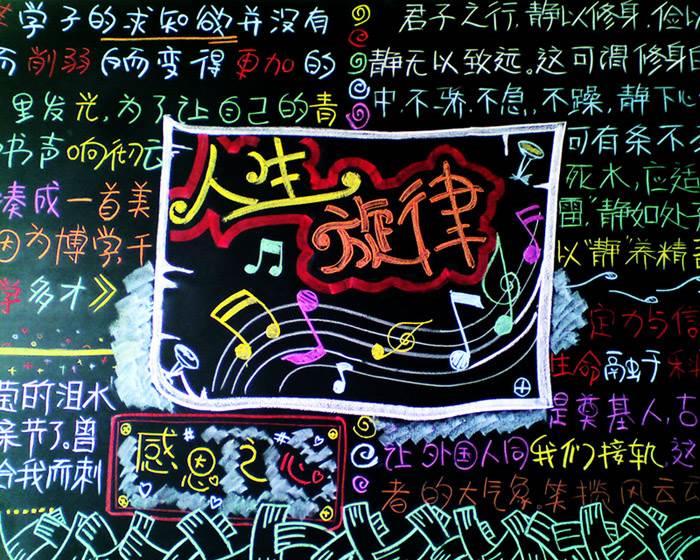 学子的求知欲并没有
而削弱反而变得更加的
里发光,为了让自己的青
书声响彻云
凑成一首美
因为博学,千
学多才》
萄的泪水
亲节了。曾
给我而刺
人生
旋律
感恩之心
君子之行,静以修身,俭以
静无以致远。这可谓修身
中,不骄.不急,不躁,静下心
可有条不
死水,应适
雷,静如处
以“静”养精
定力与信
生命融于
是奠基人,古
让外国人向我们接轨,这
者的大气象。笑揽风云